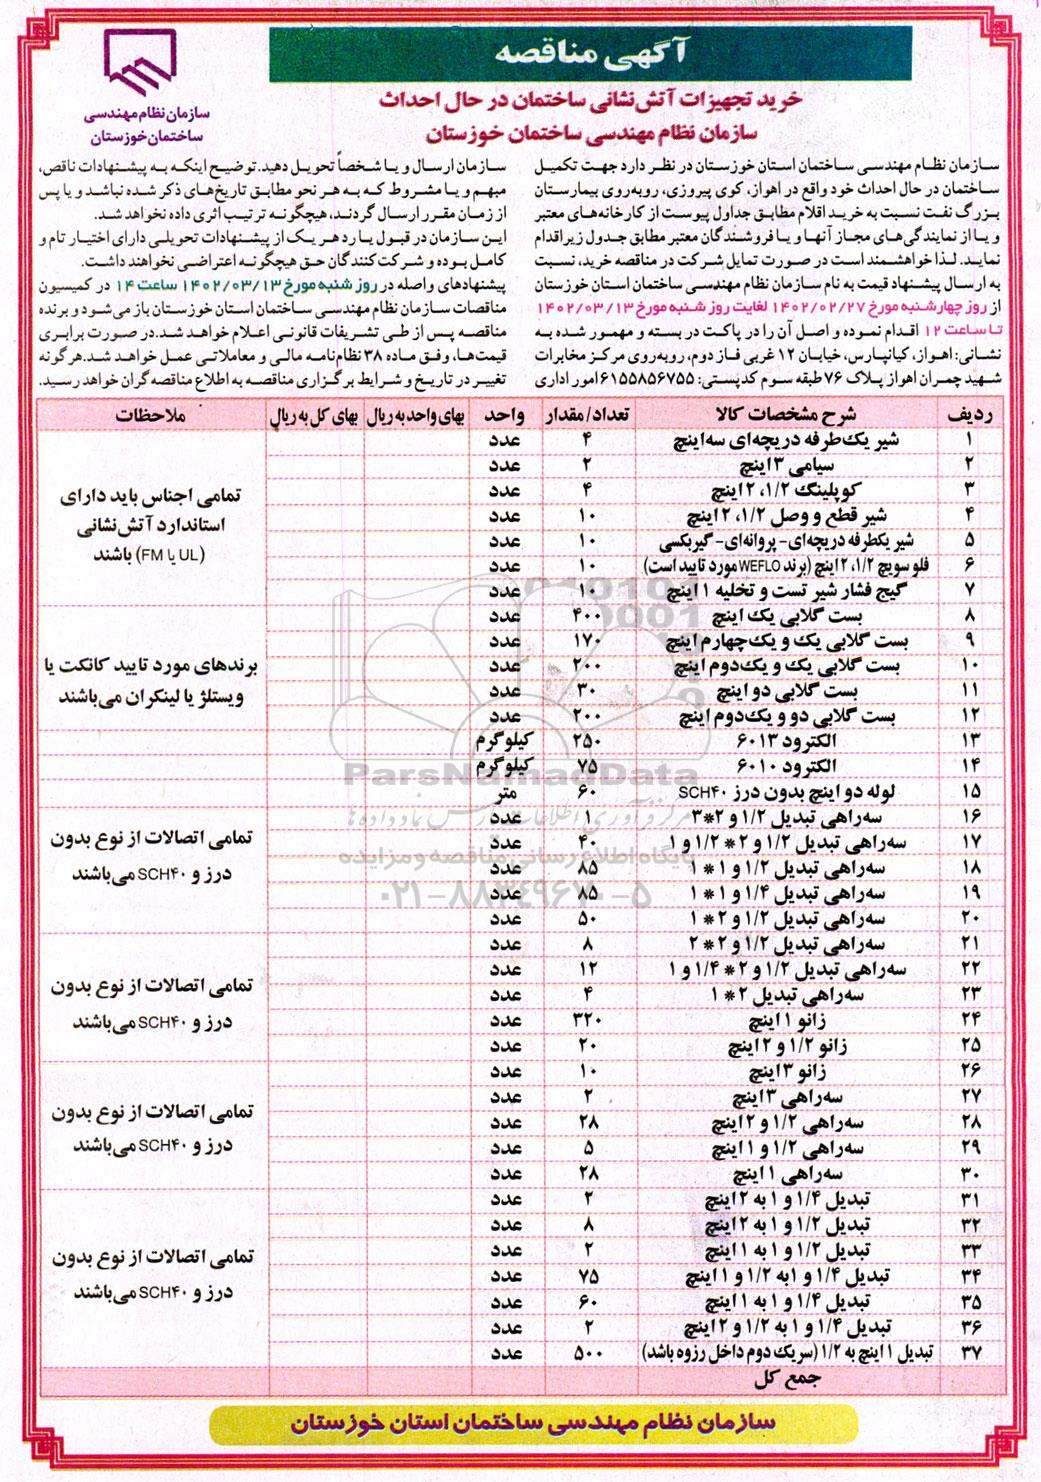 آگهی مناقصه
خرید تجهیزات آتش‌نشانی ساختمان در حال احداث
سازمان نظام مهندسی ساختمان خوزستان
سازمان نظام مهندسی
ساختمان خوزستان
سازمان نظام مهندسی ساختمان استان خوزستان در نظر دارد جهت تکمیل
ساختمان در حال احداث خود واقع در اهواز، کوی پیروزی، روبه‌روی بیمارستان
بزرگ نفت نسبت به خرید اقلام مطابق جداول پیوست از کارخانه‌های معتبر
و یا از نمایندگی‌های مجاز آنها و یا فروشندگان معتبر مطابق جدول زیر اقدام
نماید. لذا خواهشمند است در صورت تمایل شرکت در مناقصه خرید، نسبت
به ارسال پیشنهاد قیمت به نام سازمان نظام مهندسی ساختمان استان خوزستان
از روز چهارشنبه مورخ ۱۴۰۲/۰۲/۲۷ لغایت روز شنبه مورخ ۱۴۰۲/۰۳/۱۳
تا ساعت ۱۲ اقدام نموده و اصل آن را در پاکت در بسته و مهمور شده به
نشانی: اهواز، کیانپارس، خیابان ۱۲ غربی فاز دوم، روبه‌روی مرکز مخابرات
شهید چمران اهواز پلاک ۷۶ طبقه سوم کدپستی: ۶۱۵۵۸۵۶۷۵۵ امور اداری
سازمان ارسال و یا شخصاً تحویل دهید. توضیح اینکه به پیشنهادات ناقص،
مبهم و یا مشروط که به هر نحو مطابق تاریخ‌های ذکر شده نباشد و یا پس
از زمان مقرر ارسال گردند، هیچگونه ترتیب اثری داده نخواهد شد.
این سازمان در قبول یا رد هر یک از پیشنهادات تحویلی دارای اختیار تام و
کامل بوده و شرکت کنندگان حق هیچگونه اعتراضی نخواهند داشت.
پیشنهادهای واصله در روز شنبه مورخ ۱۴۰۲/۰۳/۱۳ ساعت ۱۴ در کمیسیون
مناقصات سازمان نظام مهندسی ساختمان استان خوزستان باز می‌شود و برنده
مناقصه پس از طی تشریفات قانونی اعلام خواهد شد. در صورت برابری
قیمت‌ها، وفق ماده ۳۸ نظام‌نامه مالی و معاملاتی عمل خواهد شد. هرگونه
تغییر در تاریخ و شرایط برگزاری مناقصه به اطلاع مناقصه‌گران خواهد رسید.
ردیف شرح مشخصات کالا تعداد/مقدار واحد بهای واحد به ریال بهای کل به ریال ملاحظات
۱ شیر یک‌طرفه دریچه‌ای سه‌اینچ ۴ عدد
۲ سیامی ۳ اینچ ۲ عدد
۳ کوپلینگ ۱/۲، ۲ اینچ ۴ عدد
۴ شیر قطع و وصل ۱/۲، ۲ اینچ ۱۰ عدد
۵ شیر یکطرفه دریچه‌ای- پروانه‌ای- گیربکسی ۱۰ عدد
۶ فلو سویچ ۱/۲، ۲ اینچ (برند WEFLO مورد تایید است) ۱۰ عدد
۷ گیج فشار شیر تست و تخلیه ۱ اینچ ۱۰ عدد
تمامی اجناس باید دارای
استاندارد آتش‌نشانی
(UL یا FM) باشند
۸ بست گلابی یک اینچ ۴۰۰ عدد
۹ بست گلابی یک و یک‌چهارم اینچ ۱۷۰ عدد
۱۰ بست گلابی یک و یک‌دوم اینچ ۲۰۰ عدد
۱۱ بست گلابی دو اینچ ۳۰ عدد
۱۲ بست گلابی دو و یک‌دوم اینچ ۲۰۰ عدد
۱۳ الکترود ۶۰۱۳ ۲۵۰ کیلوگرم
۱۴ الکترود ۶۰۱۰ ۷۵ کیلوگرم
برندهای مورد تایید کانکت یا
ویستلژ یا لینکران می‌باشند
۱۵ لوله دو اینچ بدون درز SCH۴۰ ۶۰ متر
۱۶ سه‌راهی تبدیل ۱/۲ و ۲*۳ ۱ عدد
۱۷ سه‌راهی تبدیل ۱/۲ و ۲* ۱/۲ و ۱ ۴۰ عدد
۱۸ سه‌راهی تبدیل ۱/۲ و ۱*۱ ۸۵ عدد
۱۹ سه‌راهی تبدیل ۱/۴ و ۱*۱ ۸۵ عدد
۲۰ سه‌راهی تبدیل ۱/۲ و ۲*۱ ۵۰ عدد
تمامی اتصالات از نوع بدون
درز و SCH۴۰ می‌باشند
۲۱ سه‌راهی تبدیل ۱/۲ و ۲*۲ ۸ عدد
۲۲ سه‌راهی تبدیل ۱/۲ و ۲* ۱/۴ و ۱ ۱۲ عدد
۲۳ سه‌راهی تبدیل ۲*۱ ۴ عدد
۲۴ زانو ۱ اینچ ۳۲۰ عدد
۲۵ زانو ۱/۲ و ۲ اینچ ۲۰ عدد
تمامی اتصالات از نوع بدون
درز و SCH۴۰ می‌باشند
۲۶ زانو ۳ اینچ ۱۰ عدد
۲۷ سه‌راهی ۳ اینچ ۲ عدد
۲۸ سه‌راهی ۱/۲ و ۲ اینچ ۲۸ عدد
۲۹ سه‌راهی ۱/۲ و ۱ اینچ ۵ عدد
۳۰ سه‌راهی ۱ اینچ ۲۸ عدد
تمامی اتصالات از نوع بدون
درز و SCH۴۰ می‌باشند
۳۱ تبدیل ۱/۴ و ۱ به ۲ اینچ ۲ عدد
۳۲ تبدیل ۱/۲ و ۱ به ۲ اینچ ۸ عدد
۳۳ تبدیل ۱/۲ و ۱ به ۱ اینچ ۲ عدد
۳۴ تبدیل ۱/۴ و ۱ به ۱/۲ و ۱ اینچ ۷۵ عدد
۳۵ تبدیل ۱/۴ و ۱ به ۱ اینچ ۶۰ عدد
۳۶ تبدیل ۱/۴ و ۱ به ۱/۲ و ۲ اینچ ۲ عدد
۳۷ تبدیل ۱ اینچ به ۱/۲ (سر یک دوم داخل رزوه باشد) ۵۰۰ عدد
تمامی اتصالات از نوع بدون
درز و SCH۴۰ می‌باشند
جمع کل
سازمان نظام مهندسی ساختمان استان خوزستان
ParsNamadData
پایگاه اطلاع رسانی مناقصه و مزایده
۰۲۱-۸۸۳۴۹۶۷۰-۵